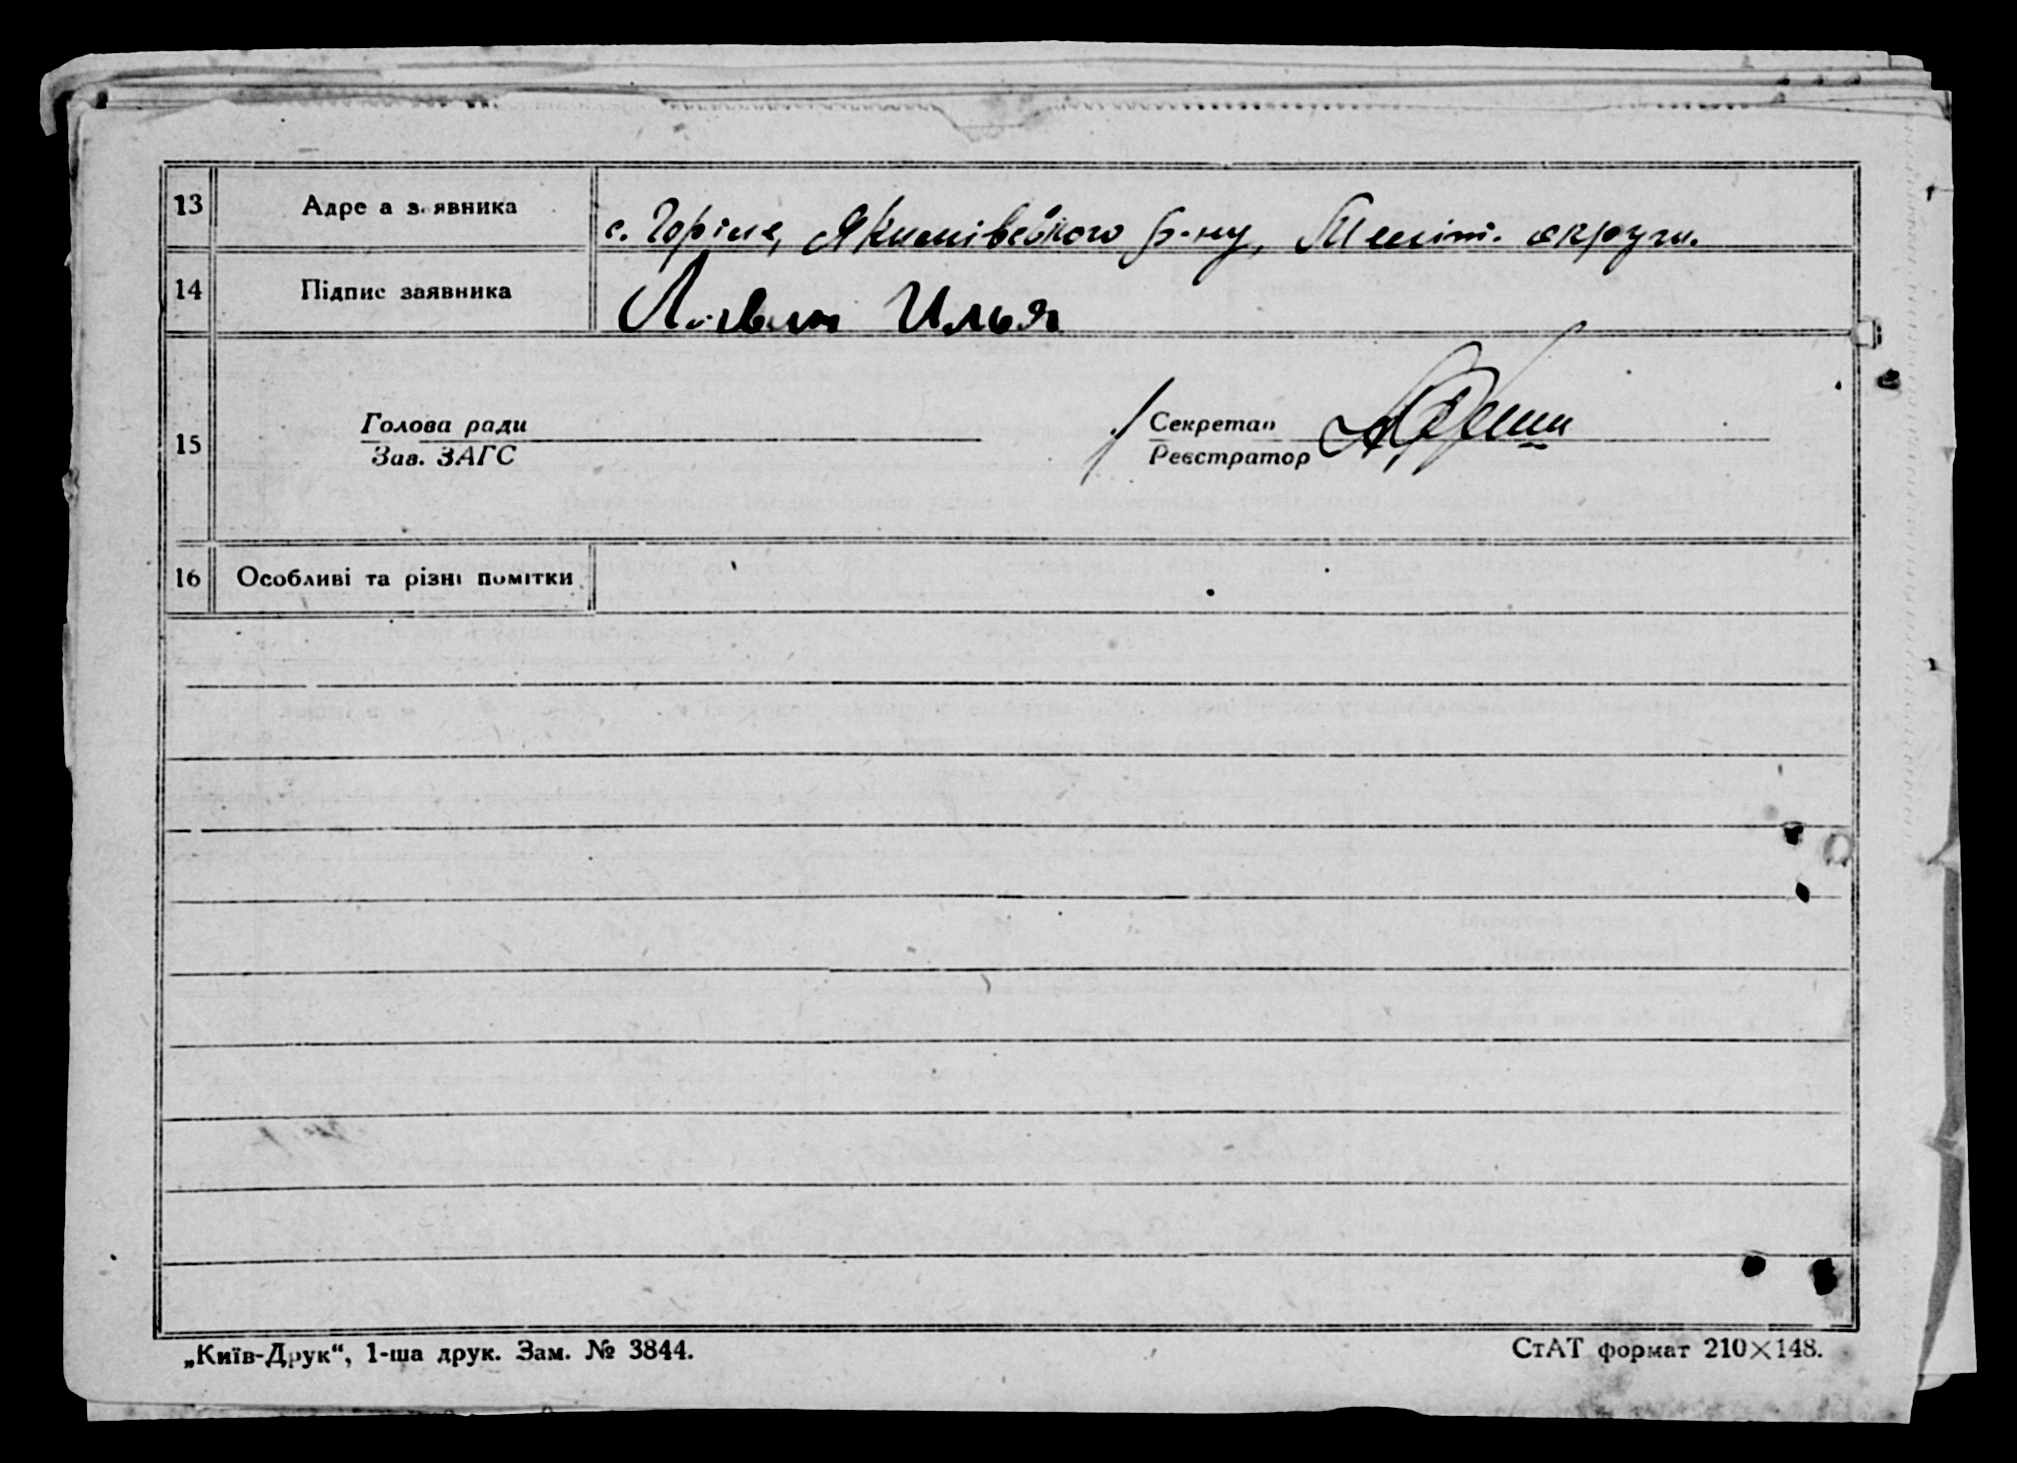 13 Адре а з явника с. Горіле, Якимівського р-ну, Меліт. округи.
14 Підпис заявника Илья
15 Голова ради Секретар
Зав. ЗАГС Реєстратор
16 Особливі та різні помітки
„Київ-Друк“, 1-ша друк. Зам. № 3844.
СтАТ формат 210×148.